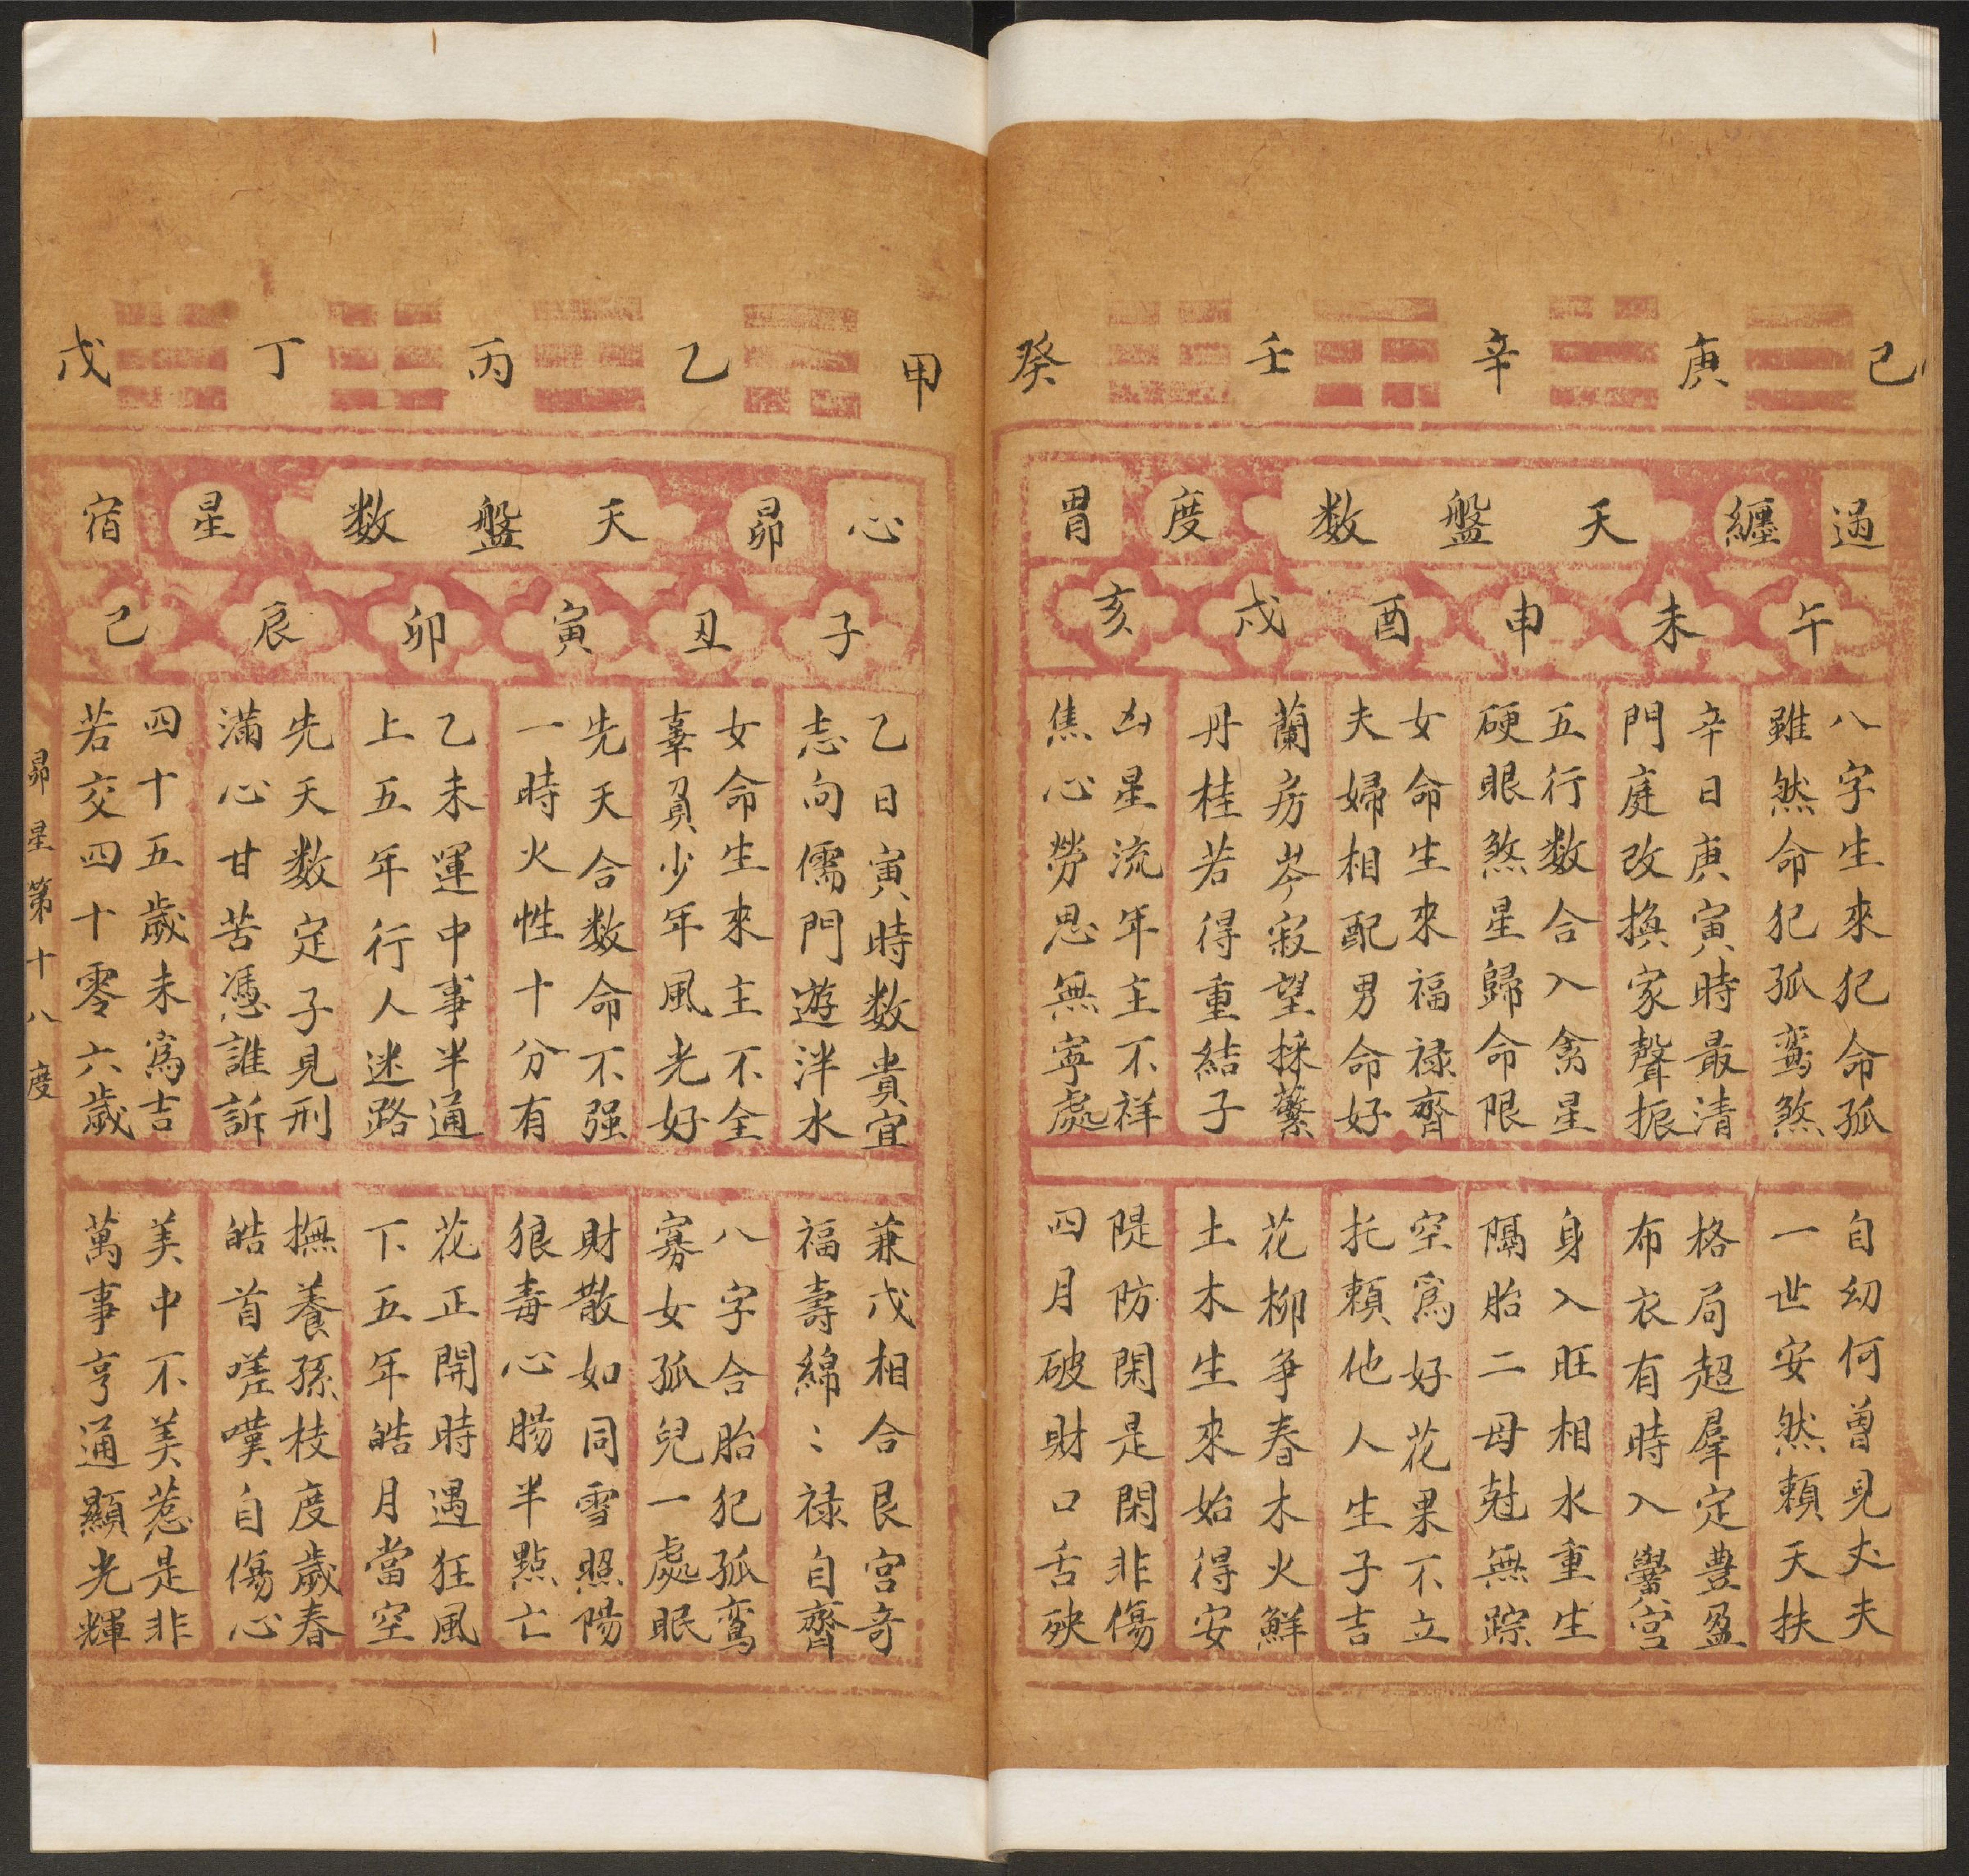 己 庚 辛 壬 癸
過 纏 天 盤 数 度 胃
午 未 申 酉 戌 亥
八字生來犯命孤
雖然命犯孤鸾煞
自幼何曾見丈夫
一世安然頼天扶
辛日庚寅時最清
門庭改換家聲振
格局超羣定豊盈
布衣有時入黌宫
五行数合入禽星
硬眼煞星歸命限
身入旺相水重生
隔胎二母尅無踪
女命生來福禄齊
夫婦相配男命好
空爲好花果不立
托頼他人生子吉
蘭房岑寂望採蘩
丹桂若得重結子
花柳争春木火鮮
土木生來始得安
凶星流年主不祥
焦心勞思無寧處
隄防閑是閑非傷
四月破財口舌殃
甲 乙 丙 丁 戊
心 昴 天 盤 数 星 宿
子 丑 寅 卯 辰 巳
乙日寅時数貴宜
志向儒門遊泮水
兼戊相合艮宫奇
福壽綿〻禄自齊
女命生來主不全
辜負少年風光好
八字合胎犯孤鸾
寡女孤兒一處眠
先天合数命不强
一時火性十分有
財散如同雪照陽
狼毒心腸半點亡
乙未運中事半通
上五年行人迷路
花正開時遇狂風
下五年皓月當空
先天数定子見刑
滿心甘苦憑誰訴
撫養孫枝度歲春
皓首嗟嘆自傷心
四十五歲未爲吉
若交四十零六歲
美中不美惹是非
萬事亨通顯光輝
昴星第十八度